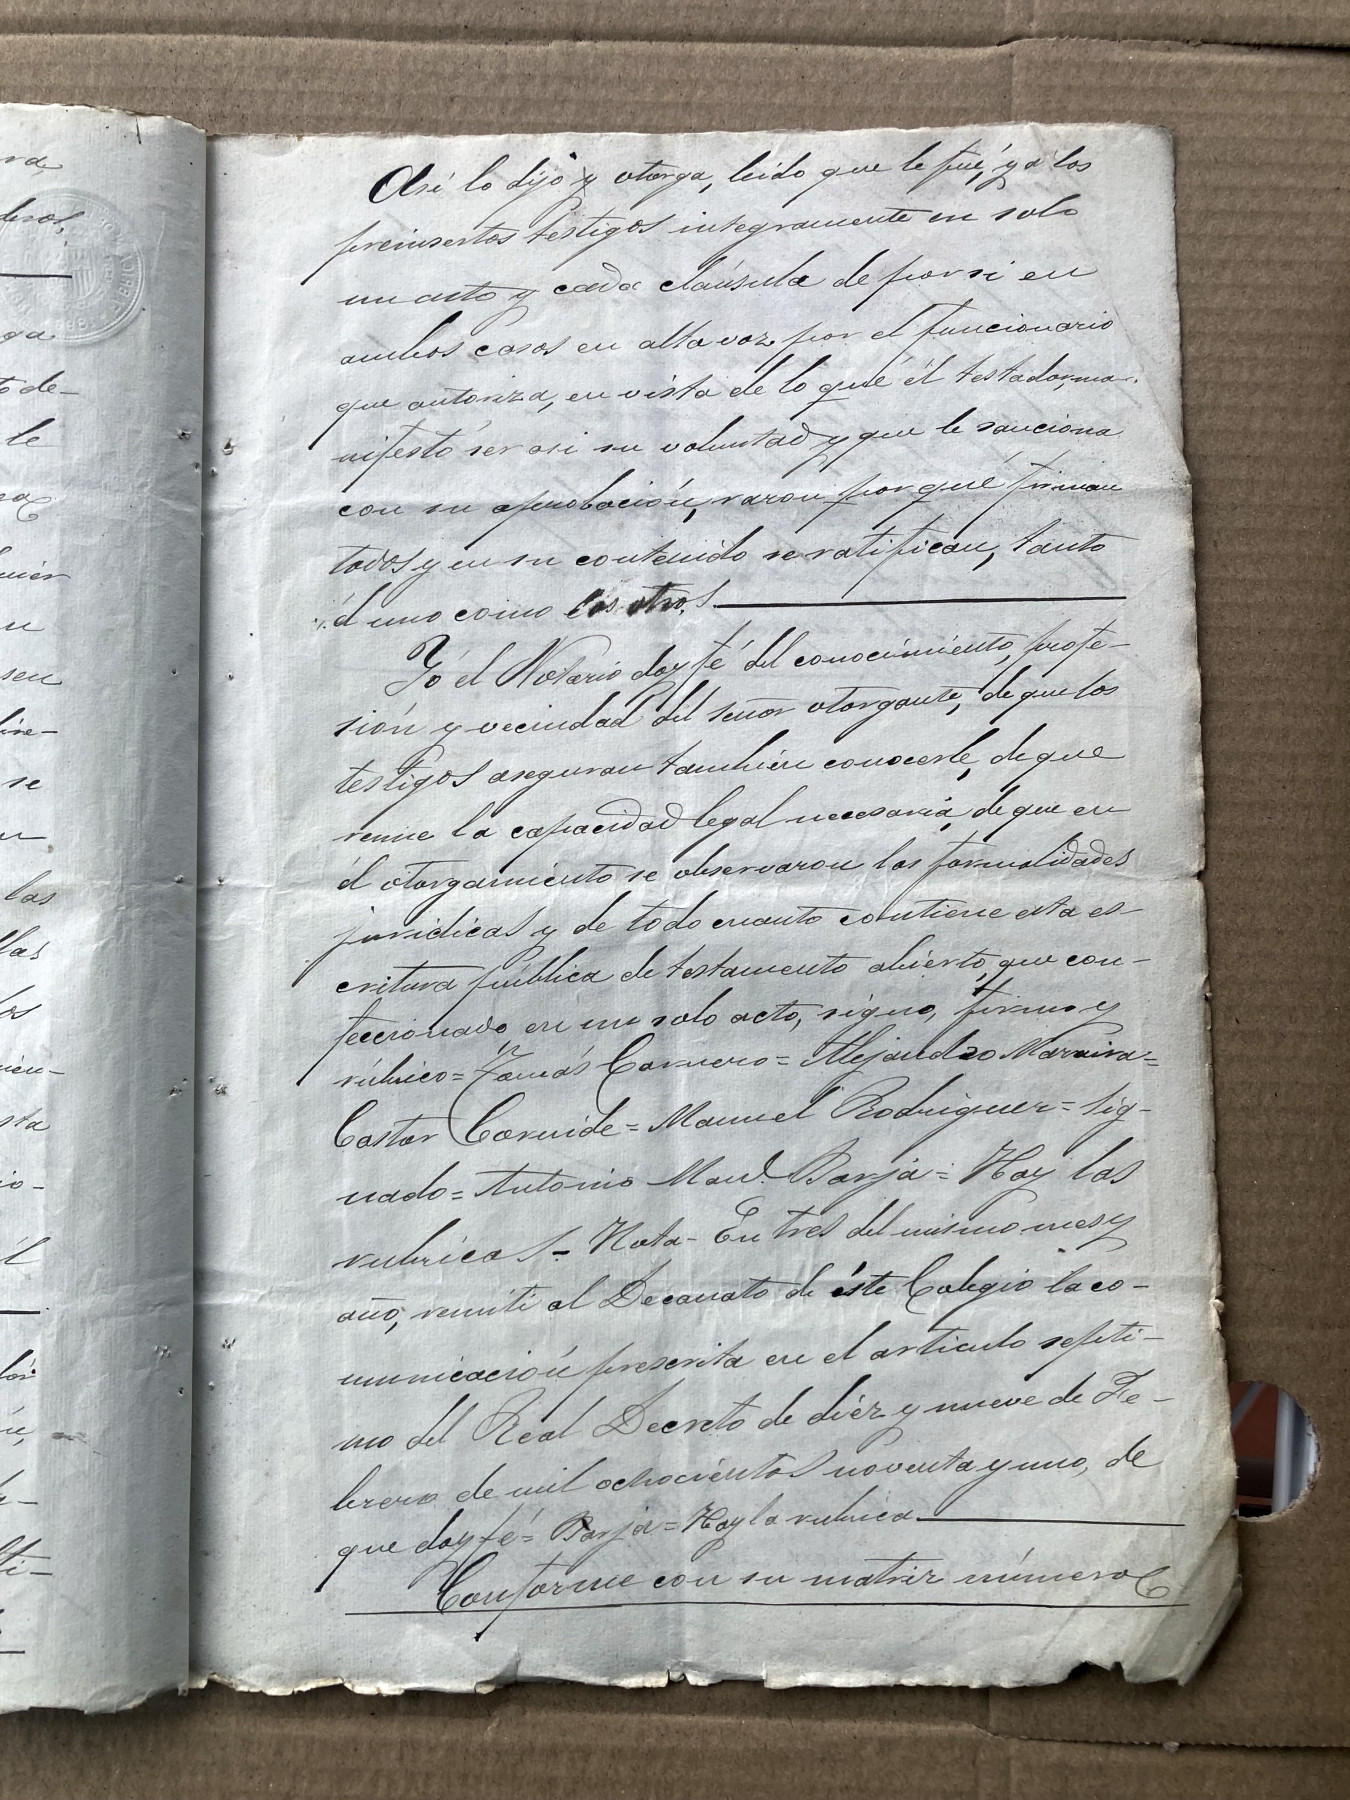 Así lo dijo y otorga, leído que le fué, y á los
preinsertos testigos integramente en solo
un acto y cada claúsula de por si en
ambos casos en alta voz por el funcionario
que autoriza, en vista de lo qué él testador, ma-
nifestó ser asi su voluntad y que le sanciona
con su aprobación, razon por qué firman
todos y en su contenido se ratifican, tanto
él uno como los otros.
Yó él Notario doy fé del conocimiénto, profe-
sión y vecindad del señor otorgante, de que los
testigos aseguran tambien conocerle, de que
reune la capacidad legal necesaria, de que en
él otorgamiénto se observaron las formalidades
juridicas y de todo cuanto contiene esta es-
critura pública de testamento abierto, que con-
feccionado en un solo acto, signo, firmo y
rúbrico = Tomás Carnero = Alejandro Moreira =
Castor Cornide = Manuel Rodriguez = Sig-
nado = Antonio Man.l Barja = Hay las
rubricas - Nota - En tres del mismo mes y
año, remiti al Decanato de éste Colegio la co-
municación prescrita en el articulo septi-
mo del Real Decreto de diéz y nueve de Fe-
brero de mil ochociéntos noventa y uno, de
que doy fé = Barja = Hay la rubrica.
Conforme con su matriz número
rva
deros,
ga
to de-
le
uier
u
seu
bre-
se
las
llas
los
sta
io-
él
ti-